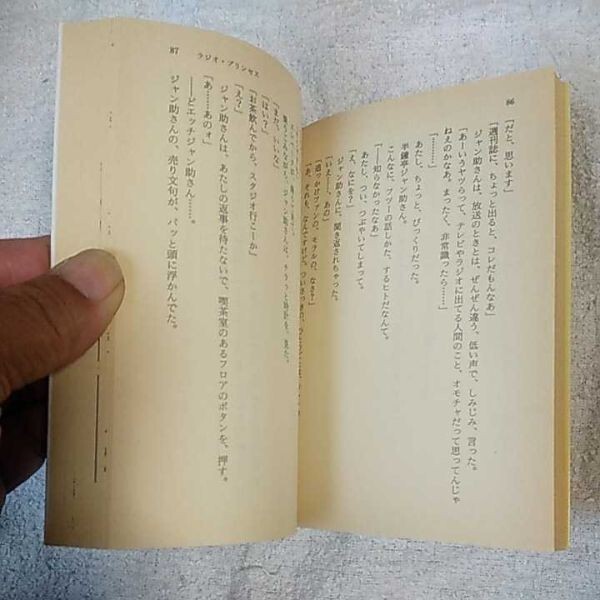 86
「だと、思います」
「週刊誌に、ちょっと出ると、コレだもんなあ」
ジャン助さんは、放送のときとは、ぜんぜん違う。低い声で、しみじみ、言った。
「あーいうヤツらって、テレビやラジオに出てる人間のこと、オモチャだって思ってんじゃ
ねえのかなあ。まったく、非常識ったら……」
「…………」
あたし、ちょっと、びっくりだった。
半鐘亭ジャン助さん。
こんなに、フツーの話しかた、するヒトだなんて。
「——知らなかったなあ」
あたし、つい、つぶやいてしまって。
「え、なにを?」
ジャン助さんに、聞き返されちゃった。
「いえ——、あの」
「追っかけファンの、モテルの、なさ?」
87　ラジオ・プリンセス
「まか、いいな」
「はい?」
「お茶飲んでから、スタジオ行こーか」
「え?」
ジャン助さんは、あたしの返事を待たないで、喫茶室のあるフロアのボタンを、押す。
「あ……あのォ」
——どエッチジャン助さん……。
ジャン助さんの、売り文句が、パッと頭に浮かんでた。